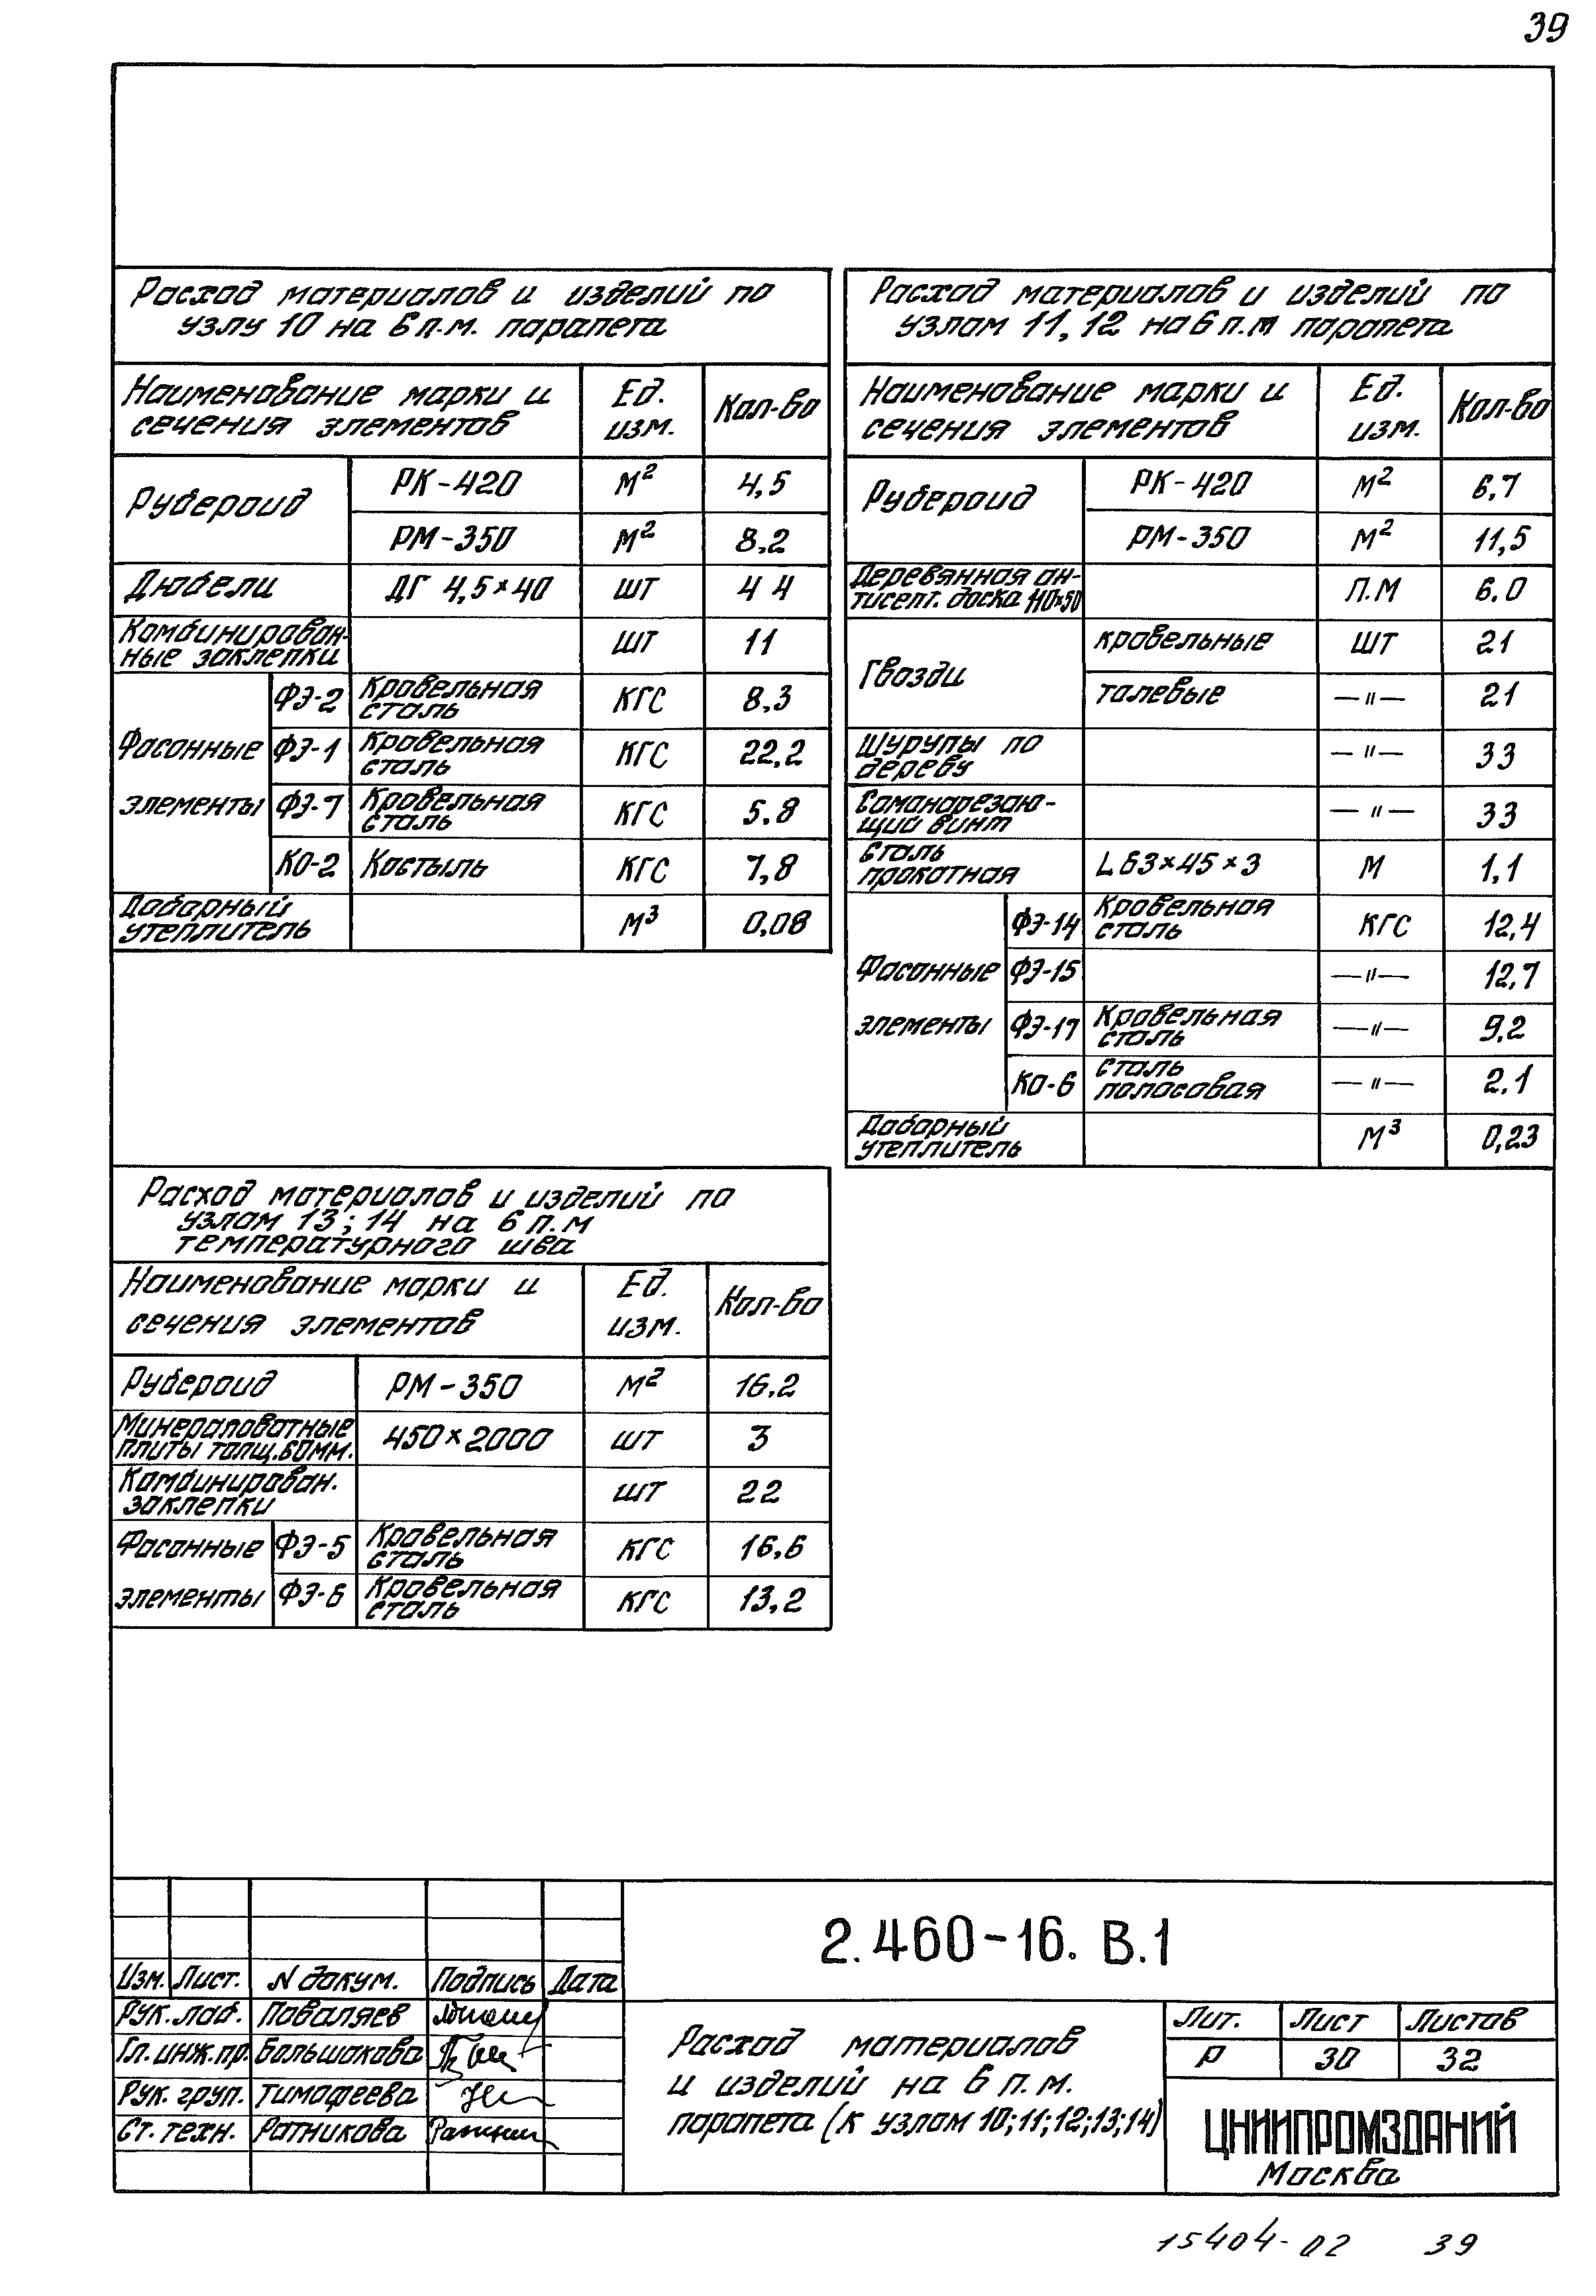 39
Расход материалов и изделий по
узлу 10 на 6 п.м. парапета
Наименование марки и
сечения элементов
Ед.
изм.
Кол-во
Рубероид
РК-420 М² 4,5
РМ-350 М² 8,2
Дюбели ДГ 4,5×40 шт 44
Комбинирован-
ные заклепки
шт 11
Фасонные
элементы
ФЭ-2 Кровельная
сталь
КГС 8,3
ФЭ-1 Кровельная
сталь
КГС 22,2
ФЭ-7 Кровельная
сталь
КГС 5.8
КО-2 Костыль КГС 7,8
Доборный
утеплитель
М³ 0,08
Расход материалов и изделий по
узлам 11, 12 на 6 п.м парапета
Наименование марки и
сечения элементов
Ед.
изм.
Кол-во
Рубероид
РК-420 М² 6,7
РМ-350 М² 11,5
Деревянная ан-
тисепт. доска 110×50
П.М 6.0
Гвозди
кровельные шт 21
толевые —"— 21
Шурупы по
дереву
—"— 33
Самонарезаю-
щий винт
—"— 33
Сталь
прокатная
L 63×45×3 М 1,1
Фасонные
элементы
ФЭ-14 Кровельная
сталь
КГС 12,4
ФЭ-15 —"— 12,7
ФЭ-17 Кровельная
сталь
—"— 9,2
КО-6 сталь
полосовая
—"— 2.1
Доборный
утеплитель
М³ 0,23
Расход материалов и изделий по
узлам 13; 14 на 6 п.м
температурного шва
Наименование марки и
сечения элементов
Ед.
изм.
Кол-во
Рубероид РМ-350 М² 16.2
Минераловатные
плиты толщ. 60мм.
450×2000 шт 3
Комбинирован.
заклепки
шт 22
Фасонные
элементы
ФЭ-5 Кровельная
сталь
кгс 16,6
ФЭ-6 Кровельная
сталь
кгс 13,2
2.460-16. В.1
Изм. Лист. N докум. Подпись Дата
Рук. лаб. Поваляев
Гл. инж. пр. Большакова
Рук. груп. Тимофеева
Ст. техн. Ратникова
Расход материалов
и изделий на 6 п.м.
парапета (к узлам 10;11;12;13;14)
Лит. Лист Листов
Р 30 32
ЦНИИПРОМЗДАНИЙ
Москва
15404-02 39